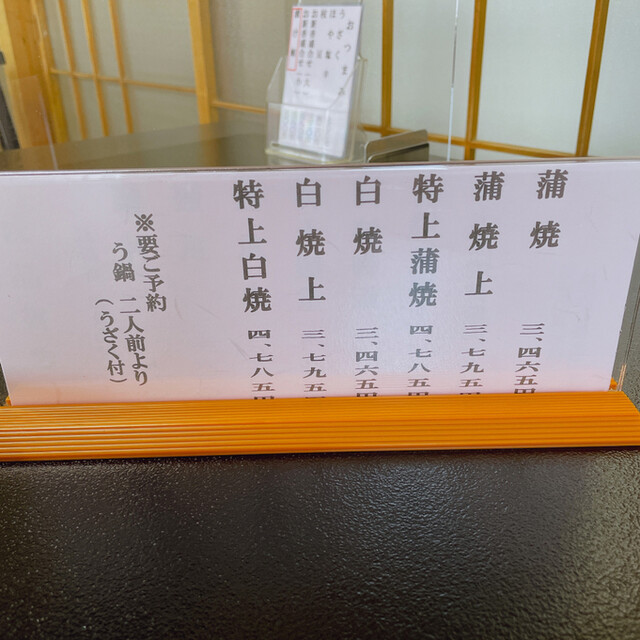 蒲焼 三、四六五円
蒲焼上 三、七九五円
特上蒲焼 四、七八五円
白焼 三、四六五円
白焼上 三、七九五円
特上白焼 四、七八五円
※要ご予約
う鍋 二人前より
(うざく付)
おつまみ